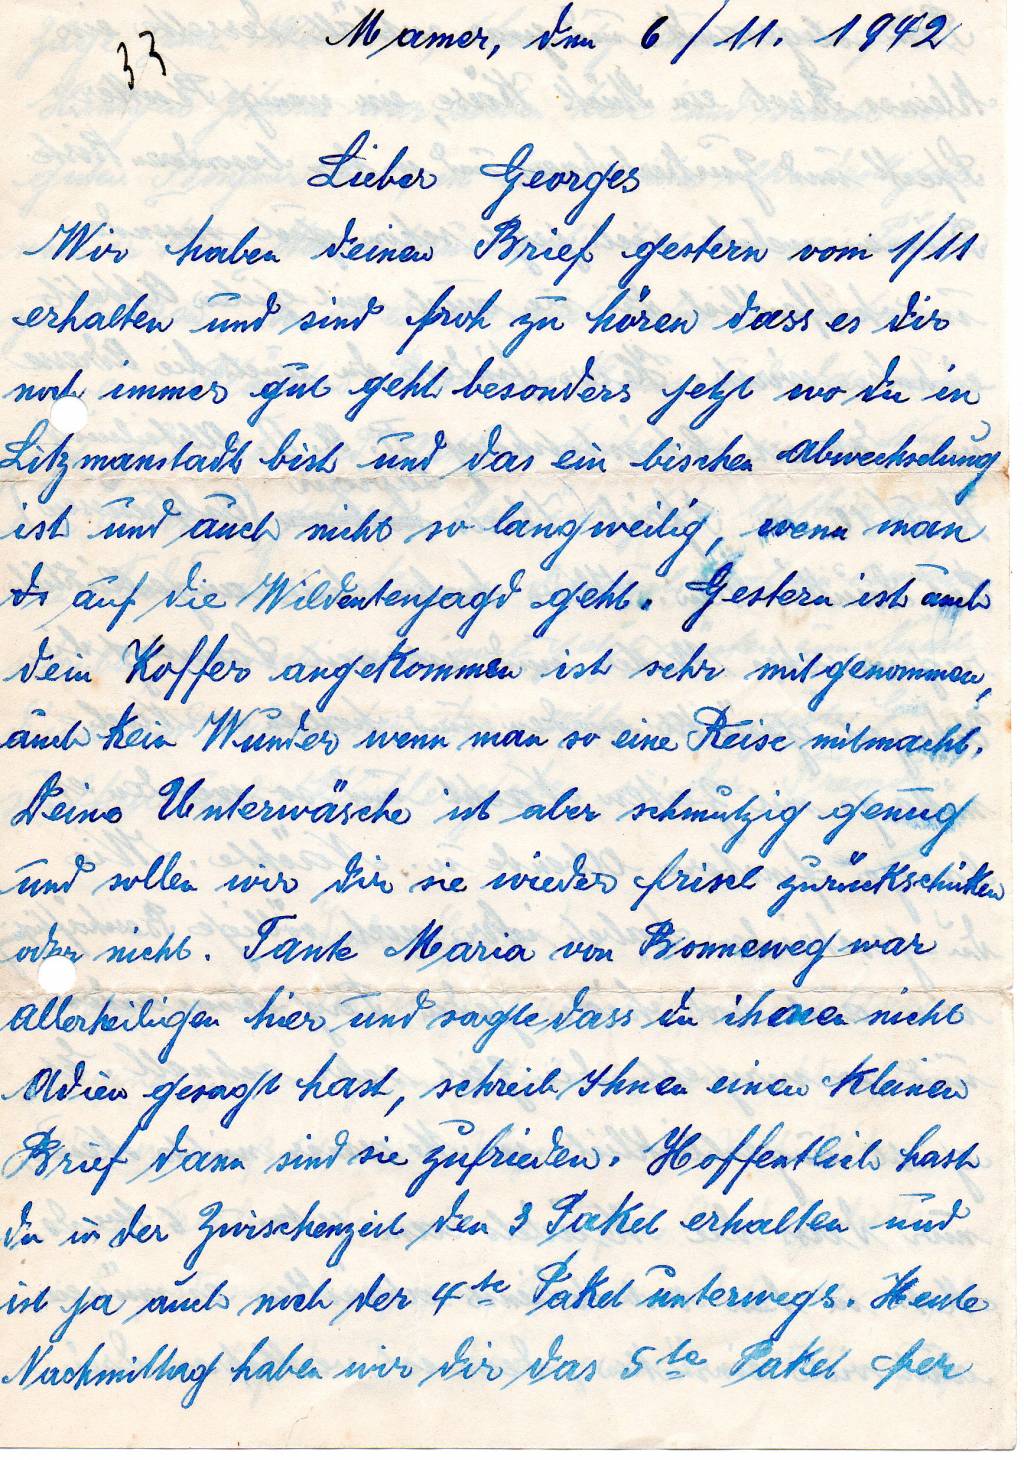 33
Mamer, den 6/11. 1942
Lieber Georges
Wir haben deinen Brief gestern vom 1/11
erhalten und sind froh zu hören dass es dir
noch immer gut geht besonders jetzt wo du in
Litzmanstadt bist und das ein bischen Abwechselung
ist und auch nicht so langweilig, wenn man
do auf die Wildentenjagd geht. Gestern ist auch
dein Koffer angekommen ist sehr mitgenommen,
auch kein Wunder wenn man so eine Reise mitmacht.
Deine Unterwäsche ist aber schmutzig genug
und sollen wir dir sie wieder frisch zurückschicken
oder nicht. Tante Maria von Bonneweg war
Allerheiligen hier und sagte dass du ihnen nicht
Adieu gesagt hast, schreib Ihnen einen kleinen
Brief dann sind sie zufrieden. Hoffentlich hast
du in der Zwischenzeit den 3 Paket erhalten und
ist ja auch noch der 4te Paket unterwegs. Heute
Nachmittag haben wir dir das 5te Paket per